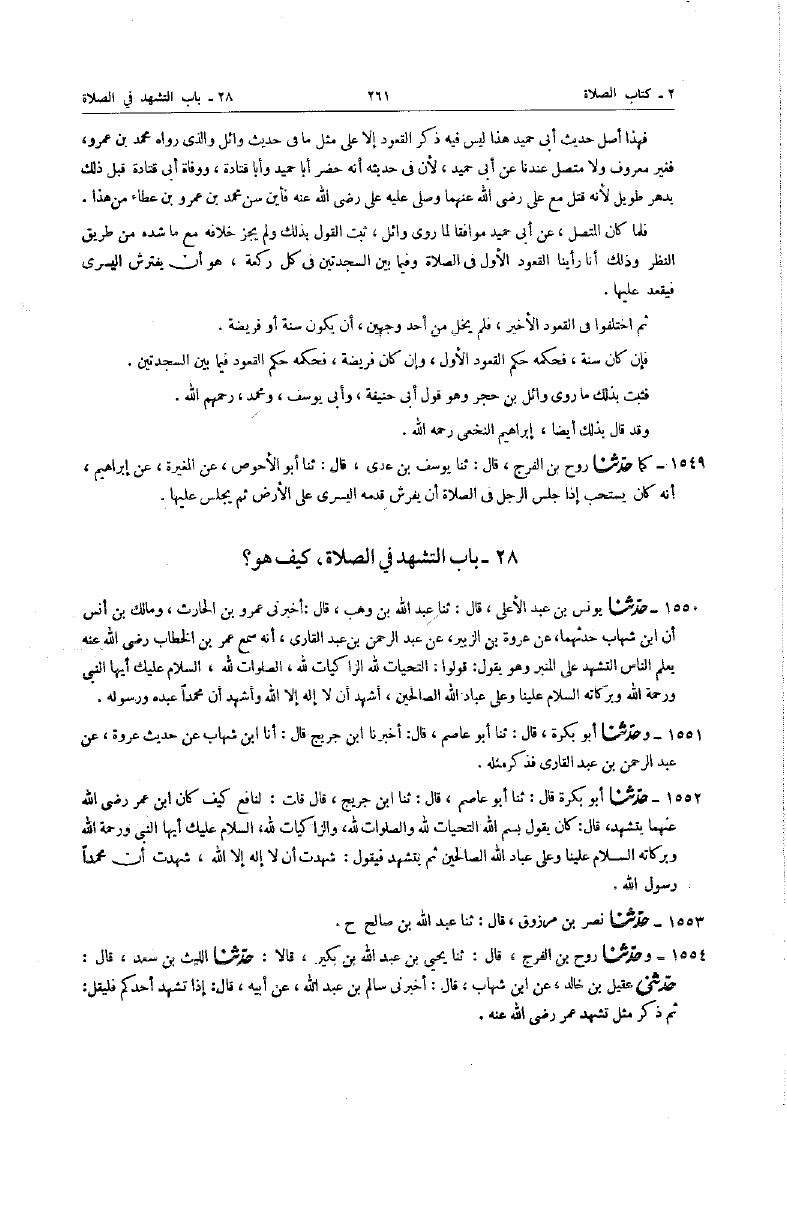 ٢ - كتاب الصلاة ٢٦١ ٢٨ - باب التشهد في الصلاة
فهذا أصل حديث أبى حميد هذا ليس فيه ذكر القعود إلا على مثل ما فى حديث وائل والذى رواه محمد بن عمرو،
فغير معروف ولا متصل عندنا عن أبى حميد ، لأن فى حديثه أنه حضر أبا حميد وأبا قتادة ، ووفاة أبى قتادة قبل ذلك
بدهر طويل لأنه قتل مع على رضى الله عنهما وصلى عليه على رضى الله عنه فأين سن محمد بن عمرو بن عطاء من هذا .
فلما كان المتصل ، عن أبى حميد موافقا لما روى وائل ، ثبت القول بذلك ولم يجز خلافه مع ما شده من طريق
النظر وذلك أنا رأينا القعود الأول فى الصلاة وفيما بين السجدتين فى كل ركعة ، هو أن يفترش اليسرى
فيقعد عليها .
ثم اختلفوا فى القعود الأخير ، فلم يخل من أحد وجهين ، أن يكون سنة أو فريضة .
فإن كان سنة ، فحكمه حكم القعود الأول ، وإن كان فريضة ، فحكمه حكم القعود فيما بين السجدتين .
فثبت بذلك ما روى وائل بن حجر وهو قول أبى حنيفة ، وأبى يوسف ، ومحمد ، رحمهم الله .
وقد قال بذلك أيضا ، إبراهيم النخعى رحمه الله .
١٥٤٩ - كما حدثنا روح بن الفرج ، قال : ثنا يوسف بن عدى ، قال : ثنا أبو الأحوص ، عن المغيرة ، عن إبراهيم ،
أنه كان يستحب إذا جلس الرجل فى الصلاة أن يفرش قدمه اليسرى على الأرض ثم يجلس عليها .
٢٨ - باب التشهد في الصلاة ، كيف هو ؟
١٥٥٠ - حدثنا يونس بن عبد الأعلى ، قال : ثنا عبد الله بن وهب ، قال :أخبرنى عمرو بن الحارث ، ومالك بن أنس
أن ابن شهاب حدثهما، عن عروة بن الزبير، عن عبد الرحمن بن عبد القارى ، أنه سمع عمر بن الخطاب رضى الله عنه
يعلم الناس التشهد على المنبر وهو يقول: قولوا : التحيات لله الزاكيات لله ، الصلوات لله ، السلام عليك أيها النبي
ورحمة الله وبركاته السلام علينا وعلى عباد الله الصالحين ، أشهد أن لا إله إلا الله وأشهد أن محمداً عبده ورسوله .
١٥٥١ - وحدثنا أبو بكرة ، قال : ثنا أبو عاصم ، قال: أخبرنا ابن جريج قال : أنا ابن شهاب عن حديث عروة ، عن
عبد الرحمن بن عبد القارى فذكر مثله .
١٥٥٢ - حدثنا أبو بكرة قال : ثنا أبو عاصم ، قال : ثنا ابن جريج ، قال قلت : لنافع كيف كان ابن عمر رضى الله
عنهما يتشهد، قال: كان يقول بسم الله التحيات لله والصلوات لله، والزاكيات لله، السلام عليك أيها النبى ورحمة الله
وبركاته السلام علينا وعلى عباد الله الصالحين ثم يتشهد فيقول : شهدت أن لا إله إلا الله ، شهدت أن محمداً
رسول الله .
١٥٥٣ - حدثنا نصر بن مرزوق ، قال : ثنا عبد الله بن صالح ح .
١٥٥٤ - وحدثنا روح بن الفرج ، قال : ثنا يحيى بن عبد الله بن بكير ، قالا : حدثنا الليث بن سعد ، قال :
حدثنى عقيل بن خالد ، عن ابن شهاب ، قال : أخبرنى سالم بن عبد الله ، عن أبيه ، قال: إذا تشهد أحدكم فليقل:
ثم ذكر مثل تشهد عمر رضى الله عنه .